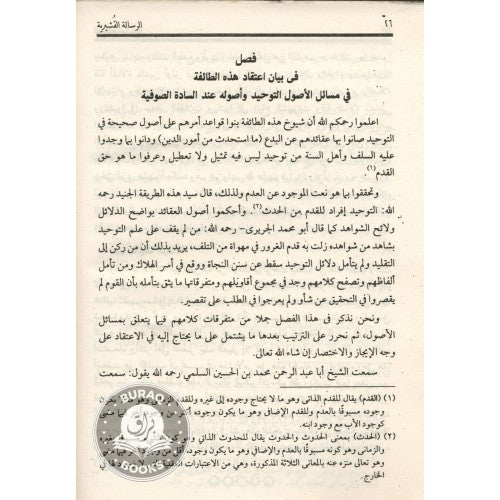 ٢٦ الرسالة القُشيرية
فصل
فى بيان اعتقاد هذه الطائفة
في مسائل الأصول التوحيد وأصوله عند السادة الصوفية
اعلموا رحمكم الله أن شيوخ هذه الطائفة بنوا قواعد أمرهم على أصول صحيحة في
التوحيد صانوا بها عقائدهم عن البدع (ما استحدث من أمور الدين) ودانوا بما وجدوا
عليه السلف وأهل السنة من توحيد ليس فيه تمثيل ولا تعطيل وعرفوا ما هو حق
القدم(١).
وتحققوا بما هو نعت الموجود عن العدم ولذلك، قال سيد هذه الطريقة الجنيد رحمه
الله: التوحيد إفراد للقدم من الحدث(٢). وأحكموا أصول العقائد بواضح الدلائل
ولائح الشواهد كما قال أبو محمد الجريرى– رحمه الله: من لم يقف على علم التوحيد
بشاهد من شواهده زلت به قدم الغرور في مهواة من التلف، يريد بذلك أن من ركن إلى
التقليد ولم يتأمل دلائل التوحيد سقط عن سنن النجاة ووقع في أسر الهلاك ومن تأمل
ألفاظهم وتصفح كلامهم وجد في مجموع أقاويلهم ومتفرقاتها ما يثق بتأمله بأن القوم لم
يقصروا في التحقيق عن شأو ولم يعرجوا في الطلب على تقصير.
ونحن نذكر فى هذا الفصل جملا من متفرقات كلامهم فيما يتعلق بمسائل
الأصول، ثم نحرر على الترتيب بعدها ما يشتمل على ما يحتاج إليه في الاعتقاد على
وجه الإيجاز والاختصار إن شاء الله تعالى.
سمعت الشيخ أبا عبد الرحمن محمد بن الحسين السلمي رحمه الله يقول: سمعت
(١) (القدم) يقال للقدم الذاتى وهو ما لا يحتاج وجوده إلى غيره وللقدم
وجوده مسبوقًا بالعدم وللقدم الإضافى وهو ما يكون وجوده
كوجود الأب مع وجود ابنه.
(٢) (الحدث) بمعنى الحدوث والحدوث يقال للحدوث الذاتى
والزمانى وهو كونه مسبوقًا بالعدم والإضافي وهو ما يكون وجوده أقل من
وهو تعالى منزه عنه بالمعانى الثلاثة المذكورة، وهي من الاعتبارات
الخارج.
BURAQ
براق
BOOKS